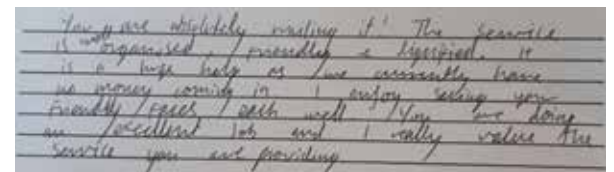 You are absolutely nailing it! The service
is organised, friendly & dignified. It
is a huge help as we currently have
no money coming in I enjoy seeing your
friendly faces each well. You are doing
an excellent job and I really value the
service you are providing